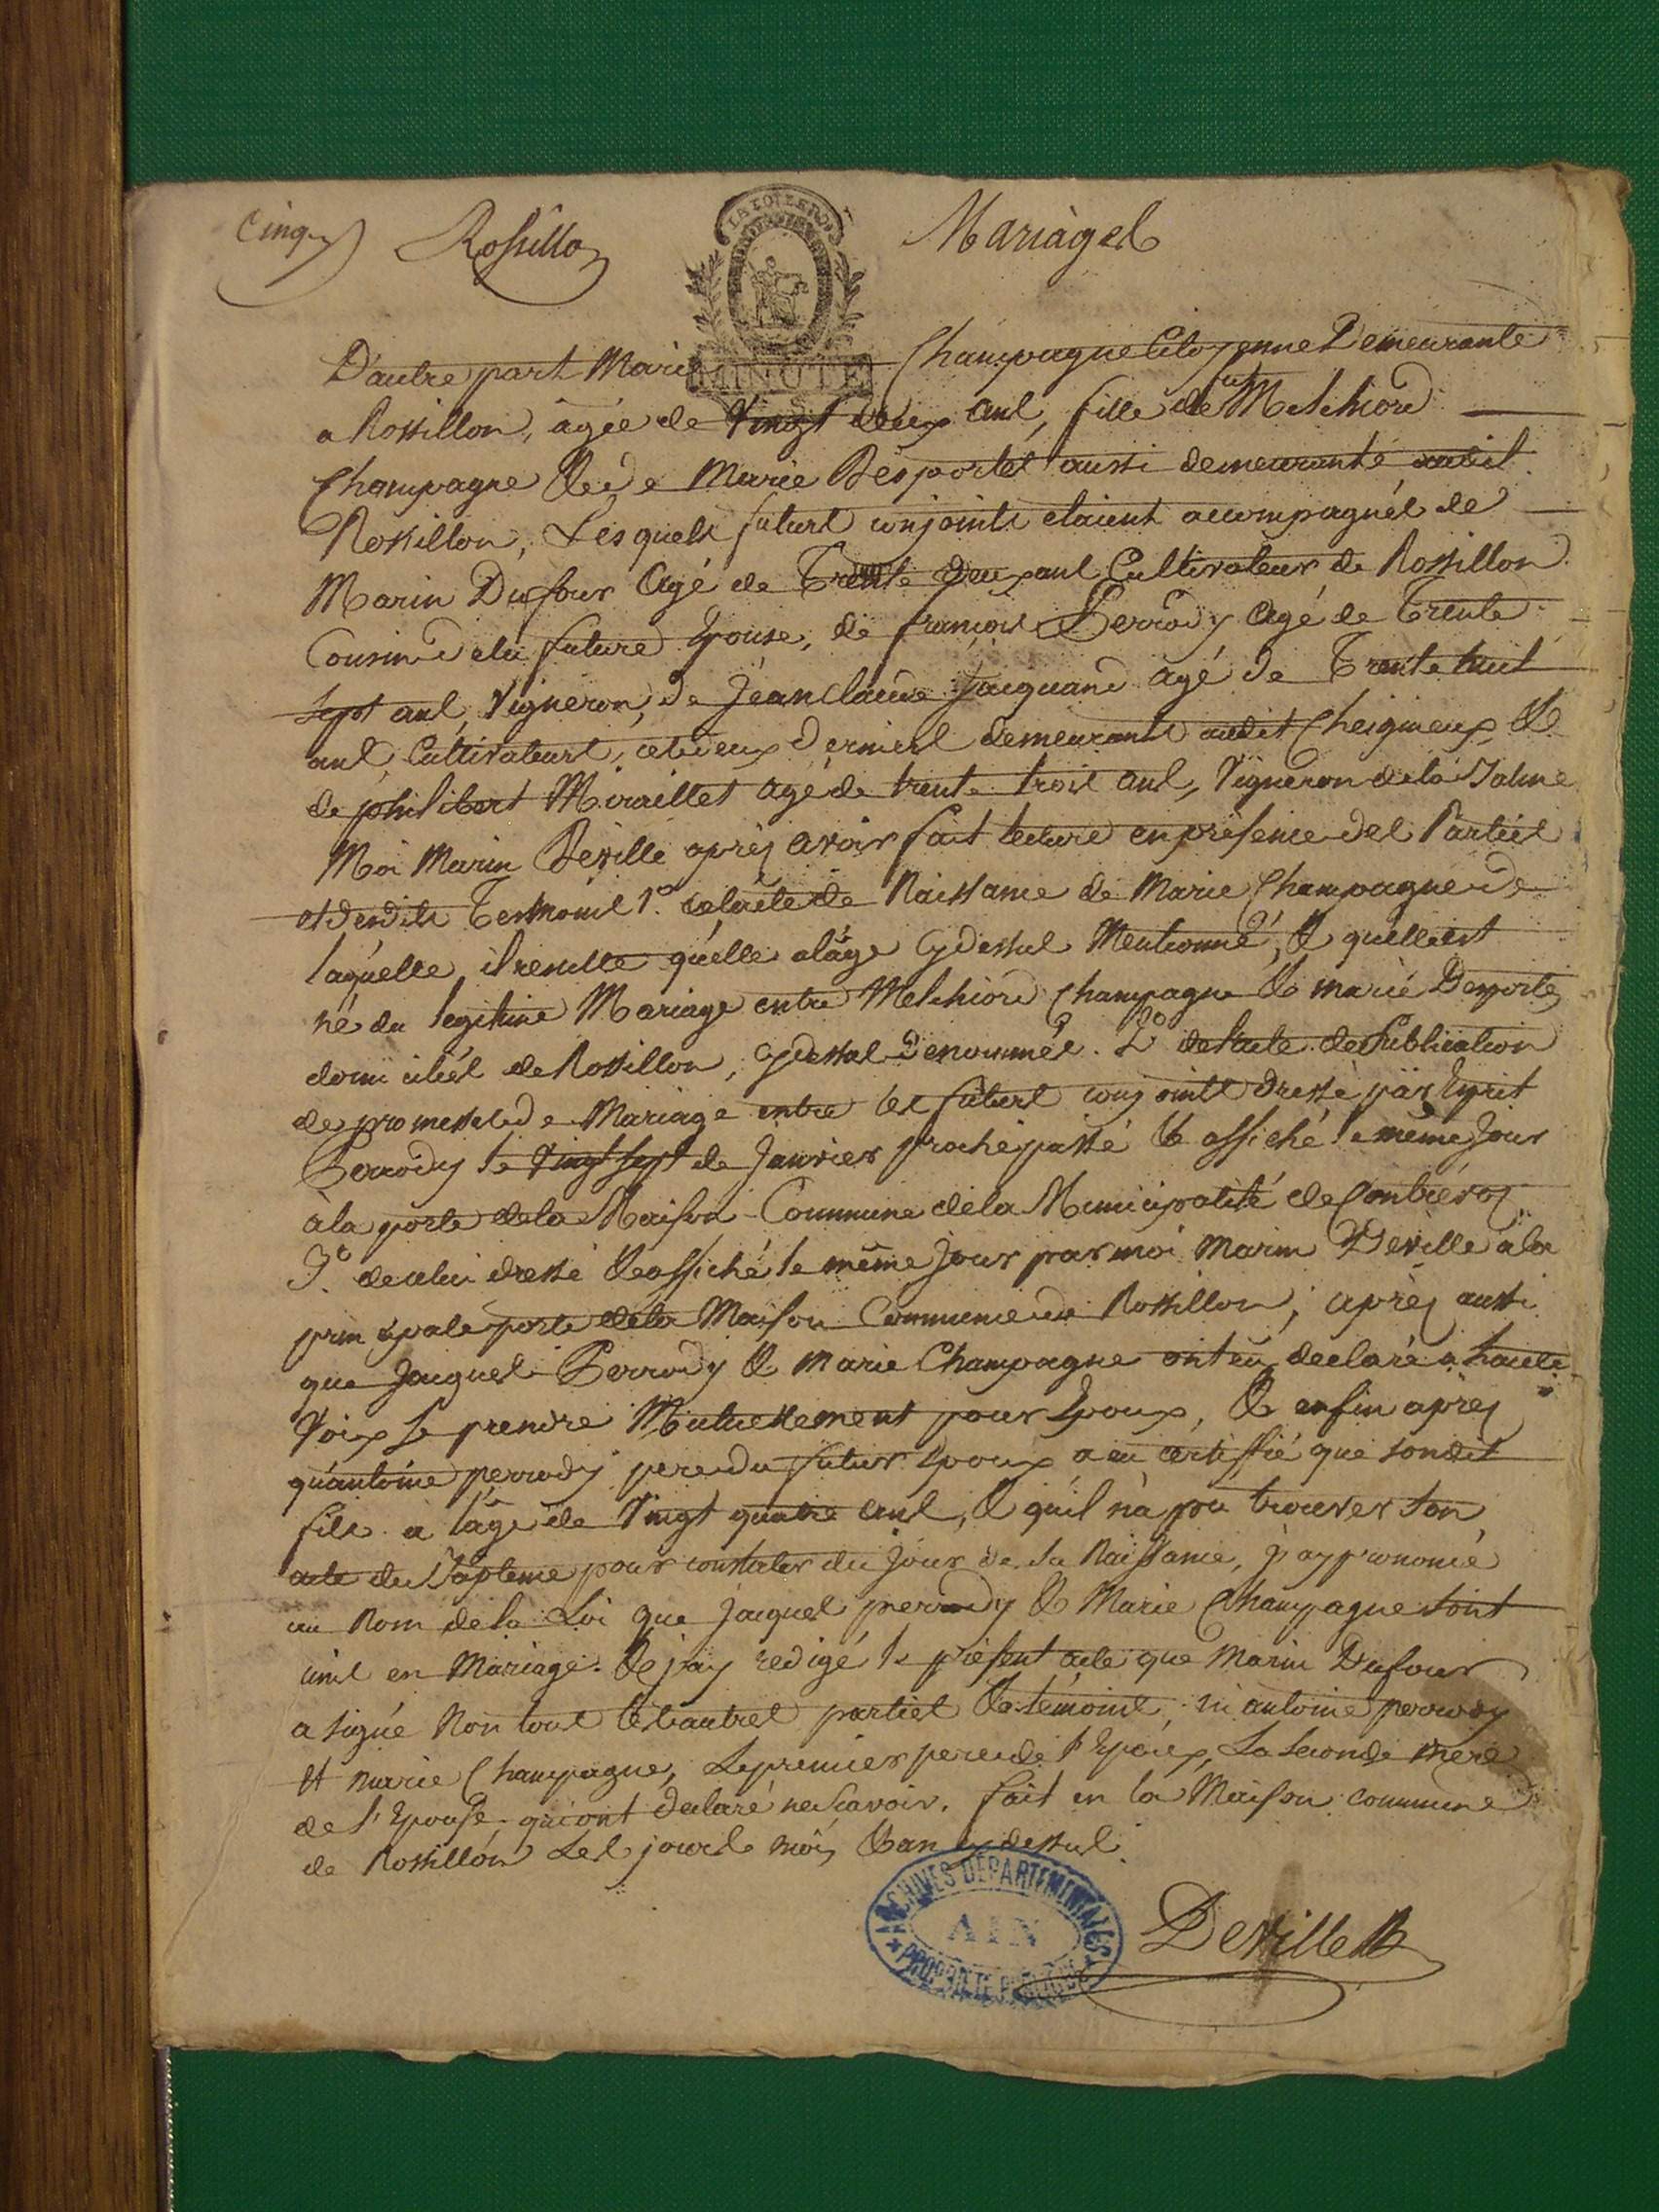 Cinq Rossillon Mariages
LA LOI LE ROI
MINUTE
D'autre part Marie Champagne Citoyenne Demeurante
a Rossillon, agée de Vingt deux ans, fille de Melchiord
Champagne & de Marie Desportes aussi demeurante audit
Rossillon, Lesquels futurs conjoints etaient accompagnés de
Marin Dufour Agé de Trente deux ans Cultivateur de Rossillon
Cousin de la future Epouse, de françois Perrody Agé de Trente
sept ans, Vigneron, de Jean Claude Jacquand agé de Trente huit
ans, Cultivateurs, ces deux derniers demeurants audit Cheignieux, &
de philibert Miraillet agé de trente trois ans, Vigneron de la
Moi Marin Deville après avoir fait lecture en présence des Parties
et desdits Temoins 1º. de l'acte de Naissance de Marie Champagne de
laquelle il resulte qu'elle a l'âge cydessus Mentionné, & qu'elle est
né du legitime Mariage entre Melchiord Champagne & marie Desportes
domiciliés de Rossillon, cydessus denommés. 2º de l'acte de Publication
de promesses de Mariage entre les futurs conjoints dressé par Esprit
Perrody le Vingt sept de Janvier proche passé & affiché le même Jour
à la porte de la Maison Commune de la Municipalité de Contrevoz
3º. de celui dressé & affiché le même Jour par moi Marin Deville a la
principale porte de la Maison Commune de Rossillon; après aussi
que Jacques Perrody & Marie Champagne ont eu declaré a haute
Voix se prendre Mutuellement pour Epoux, & enfin après
qu'antoine perrody pere du futur Epoux a eu certiffié que sondit
fils a l'âge de Vingt quatre ans, & qu'il n'a pu trouver son
acte de Bapteme pour constater du Jour de sa Naissance, j'ay prononcé
au Nom de la Loi que Jacques perrody & Marie Champagne sont
unis en Mariage. & j'ay redigé le présent acte que Marin Dufour
a signé Non tous les autres parties & témoins, ni antoine perrody
et marie Champagne, Le premier pere de l'Epoux, La seconde mere
de l'Epouse, qui ont declaré ne sçavoir. fait en la Maison commune
de Rossillon Les jours mois & an cydessus.
ARCHIVES DEPARTEMENTALES
AIN
PROPRIETE PUBLIQUE
Deville